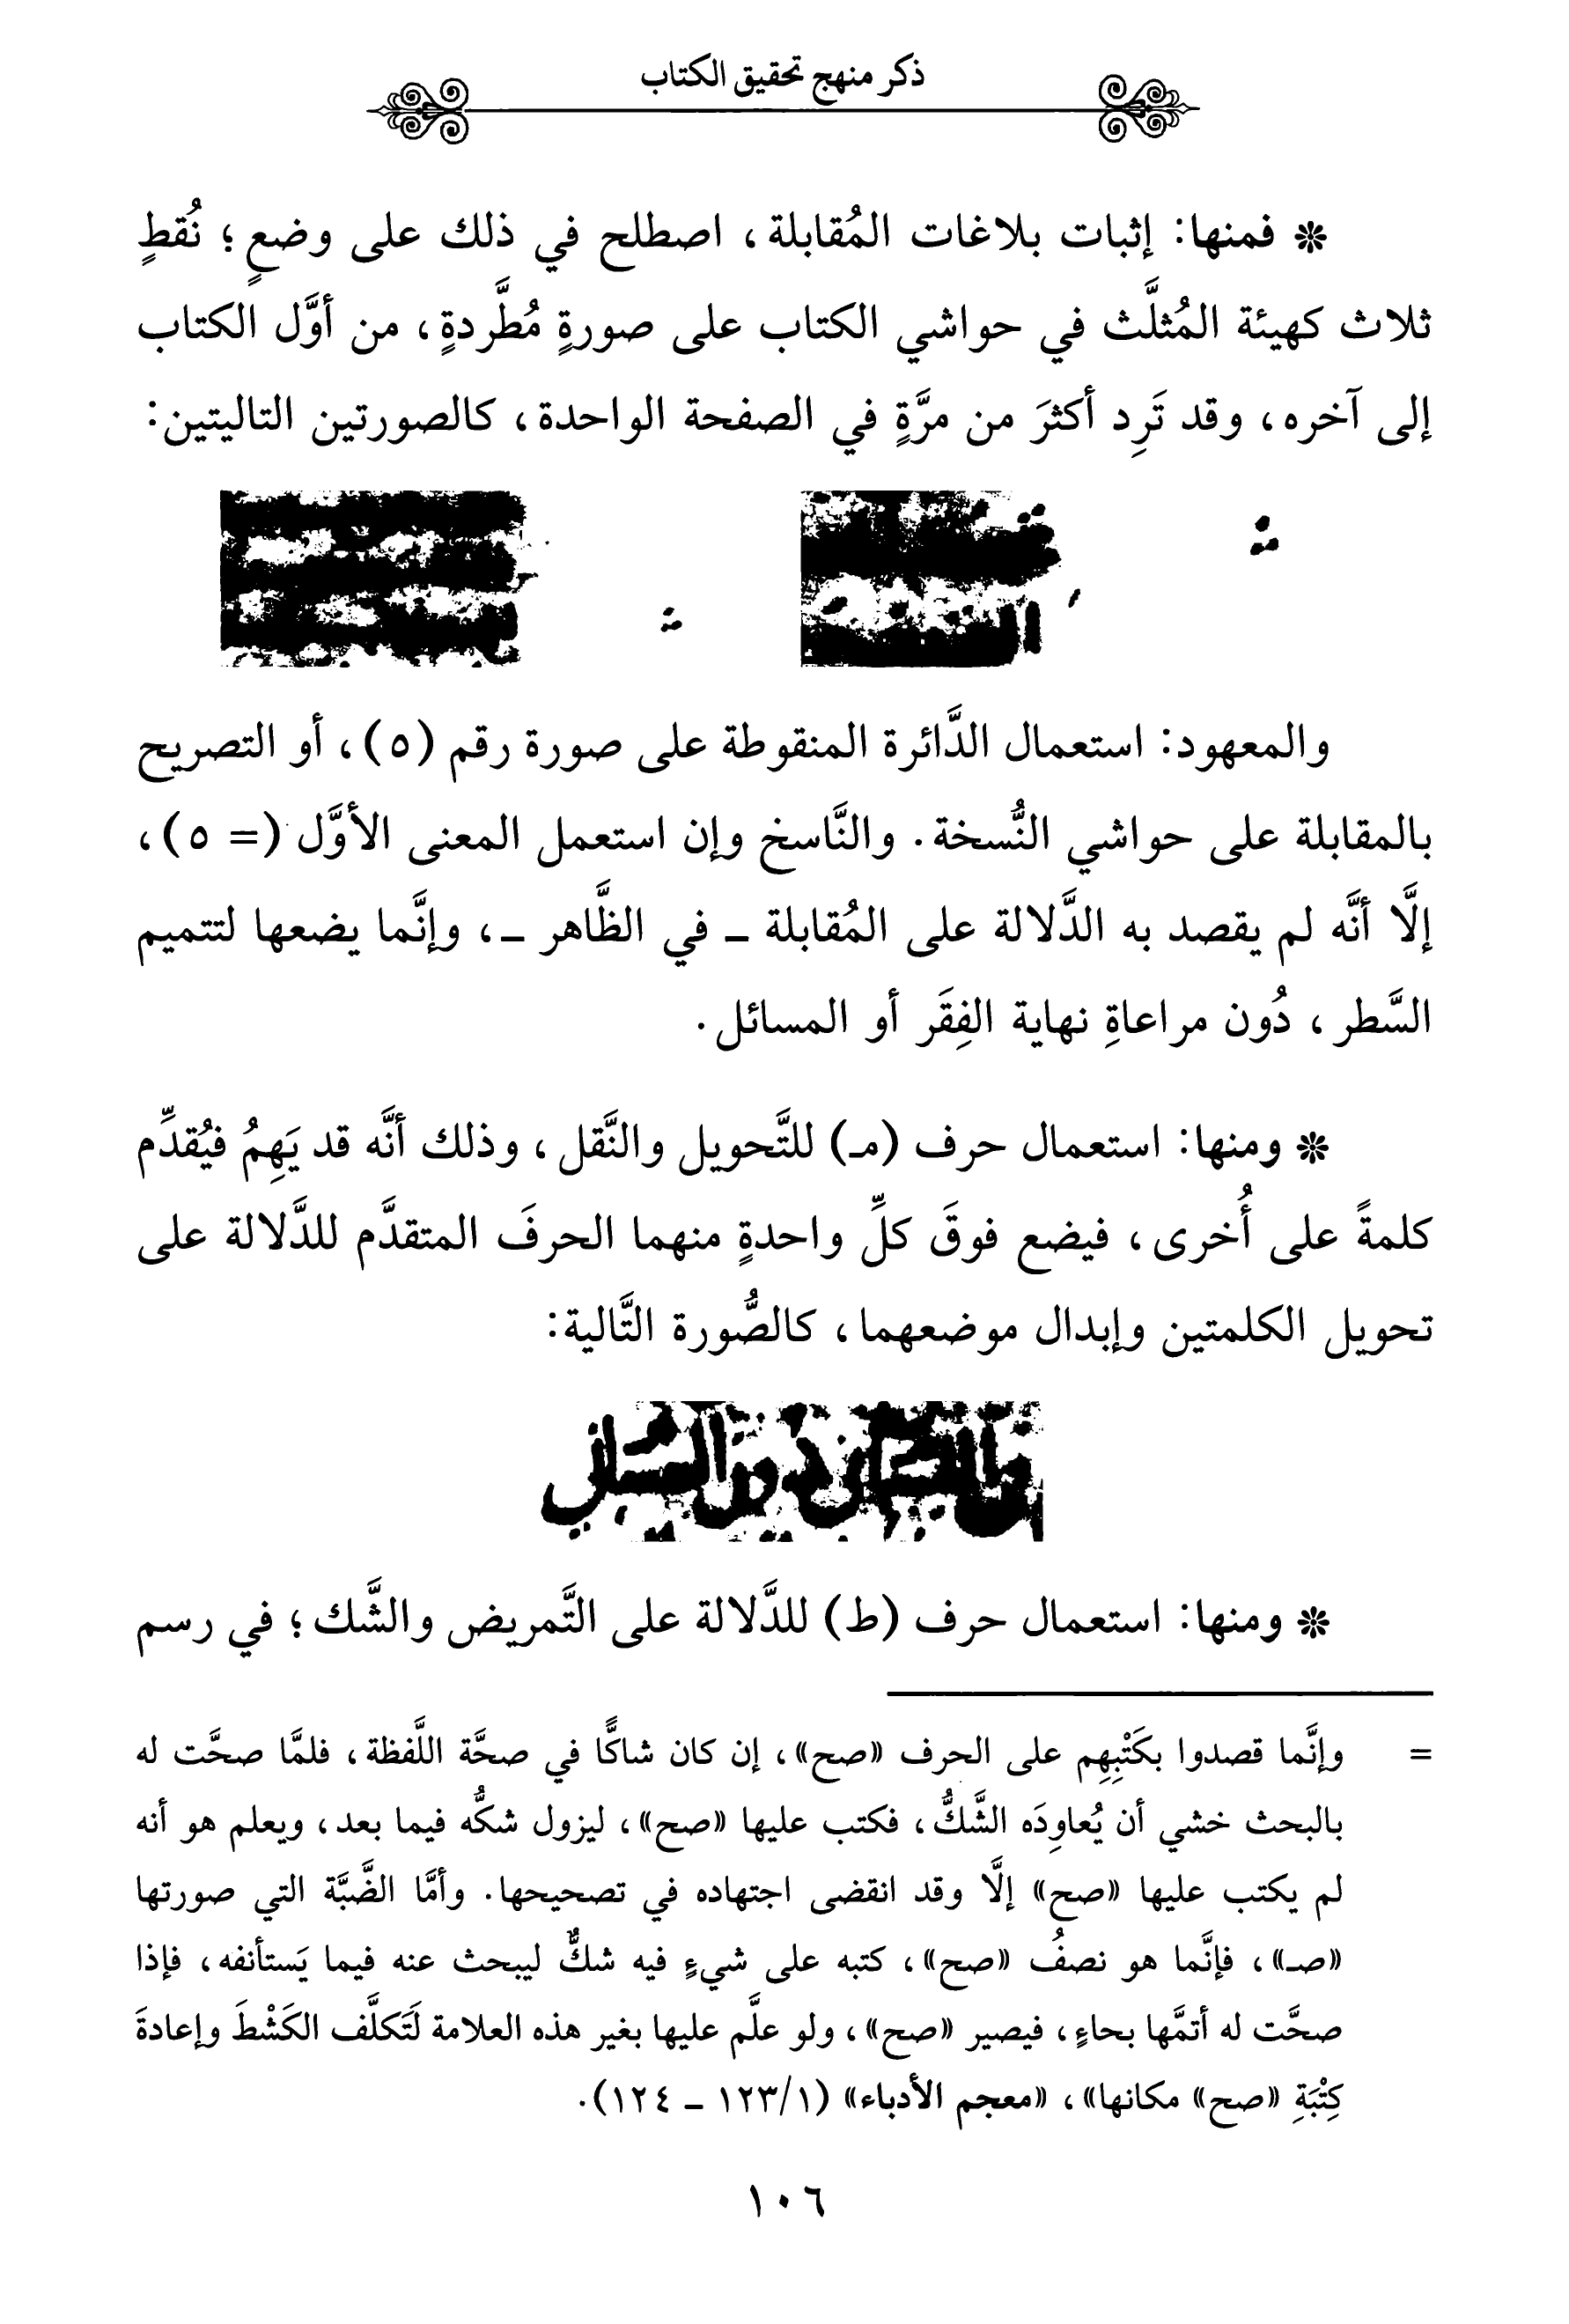 ذكر منهج تحقيق الكتاب
❊ فمنها: إثبات بلاغات المُقابلة، اصطلح في ذلك على وضعٍ؛ نُقطٍ
ثلاث كهيئة المُثلَّث في حواشي الكتاب على صورةٍ مُطَّردةٍ، من أوَّل الكتاب
إلى آخره، وقد تَرِد أكثرَ من مرَّةٍ في الصفحة الواحدة، كالصورتين التاليتين:
والمعهود: استعمال الدَّائرة المنقوطة على صورة رقم (٥)، أو التصريح
بالمقابلة على حواشي النُّسخة. والنَّاسخ وإن استعمل المعنى الأوَّل (= ٥)،
إلَّا أنَّه لم يقصد به الدَّلالة على المُقابلة ـ في الظَّاهر ـ، وإنَّما يضعها لتتميم
السَّطر، دُون مراعاةِ نهاية الفِقَر أو المسائل.
❊ ومنها: استعمال حرف (مـ) للتَّحويل والنَّقل، وذلك أنَّه قد يَهِمُ فيُقدِّم
كلمةً على أُخرى، فيضع فوقَ كلِّ واحدةٍ منهما الحرفَ المتقدَّم للدَّلالة على
تحويل الكلمتين وإبدال موضعهما، كالصُّورة التَّالية:
❊ ومنها: استعمال حرف (ط) للدَّلالة على التَّمريض والشَّك؛ في رسم
= وإنَّما قصدوا بكَتْبِهِم على الحرف «صح»، إن كان شاكًّا في صحَّة اللَّفظة، فلمَّا صحَّت له
بالبحث خشي أن يُعاوِدَه الشَّكُّ، فكتب عليها «صح»، ليزول شكُّه فيما بعد، ويعلم هو أنه
لم يكتب عليها «صح» إلَّا وقد انقضى اجتهاده في تصحيحها. وأمَّا الضَّبَّة التي صورتها
«صـ»، فإنَّما هو نصفُ «صح»، كتبه على شيءٍ فيه شكٌّ ليبحث عنه فيما يَستأنفه، فإذا
صحَّت له أتمَّها بحاءٍ، فيصير «صح»، ولو علَّم عليها بغير هذه العلامة لَتَكلَّف الكَشْطَ وإعادةَ
كِتْبَةِ «صح» مكانها»، «معجم الأدباء» (١٢٣/١ ـ ١٢٤).
١٠٦